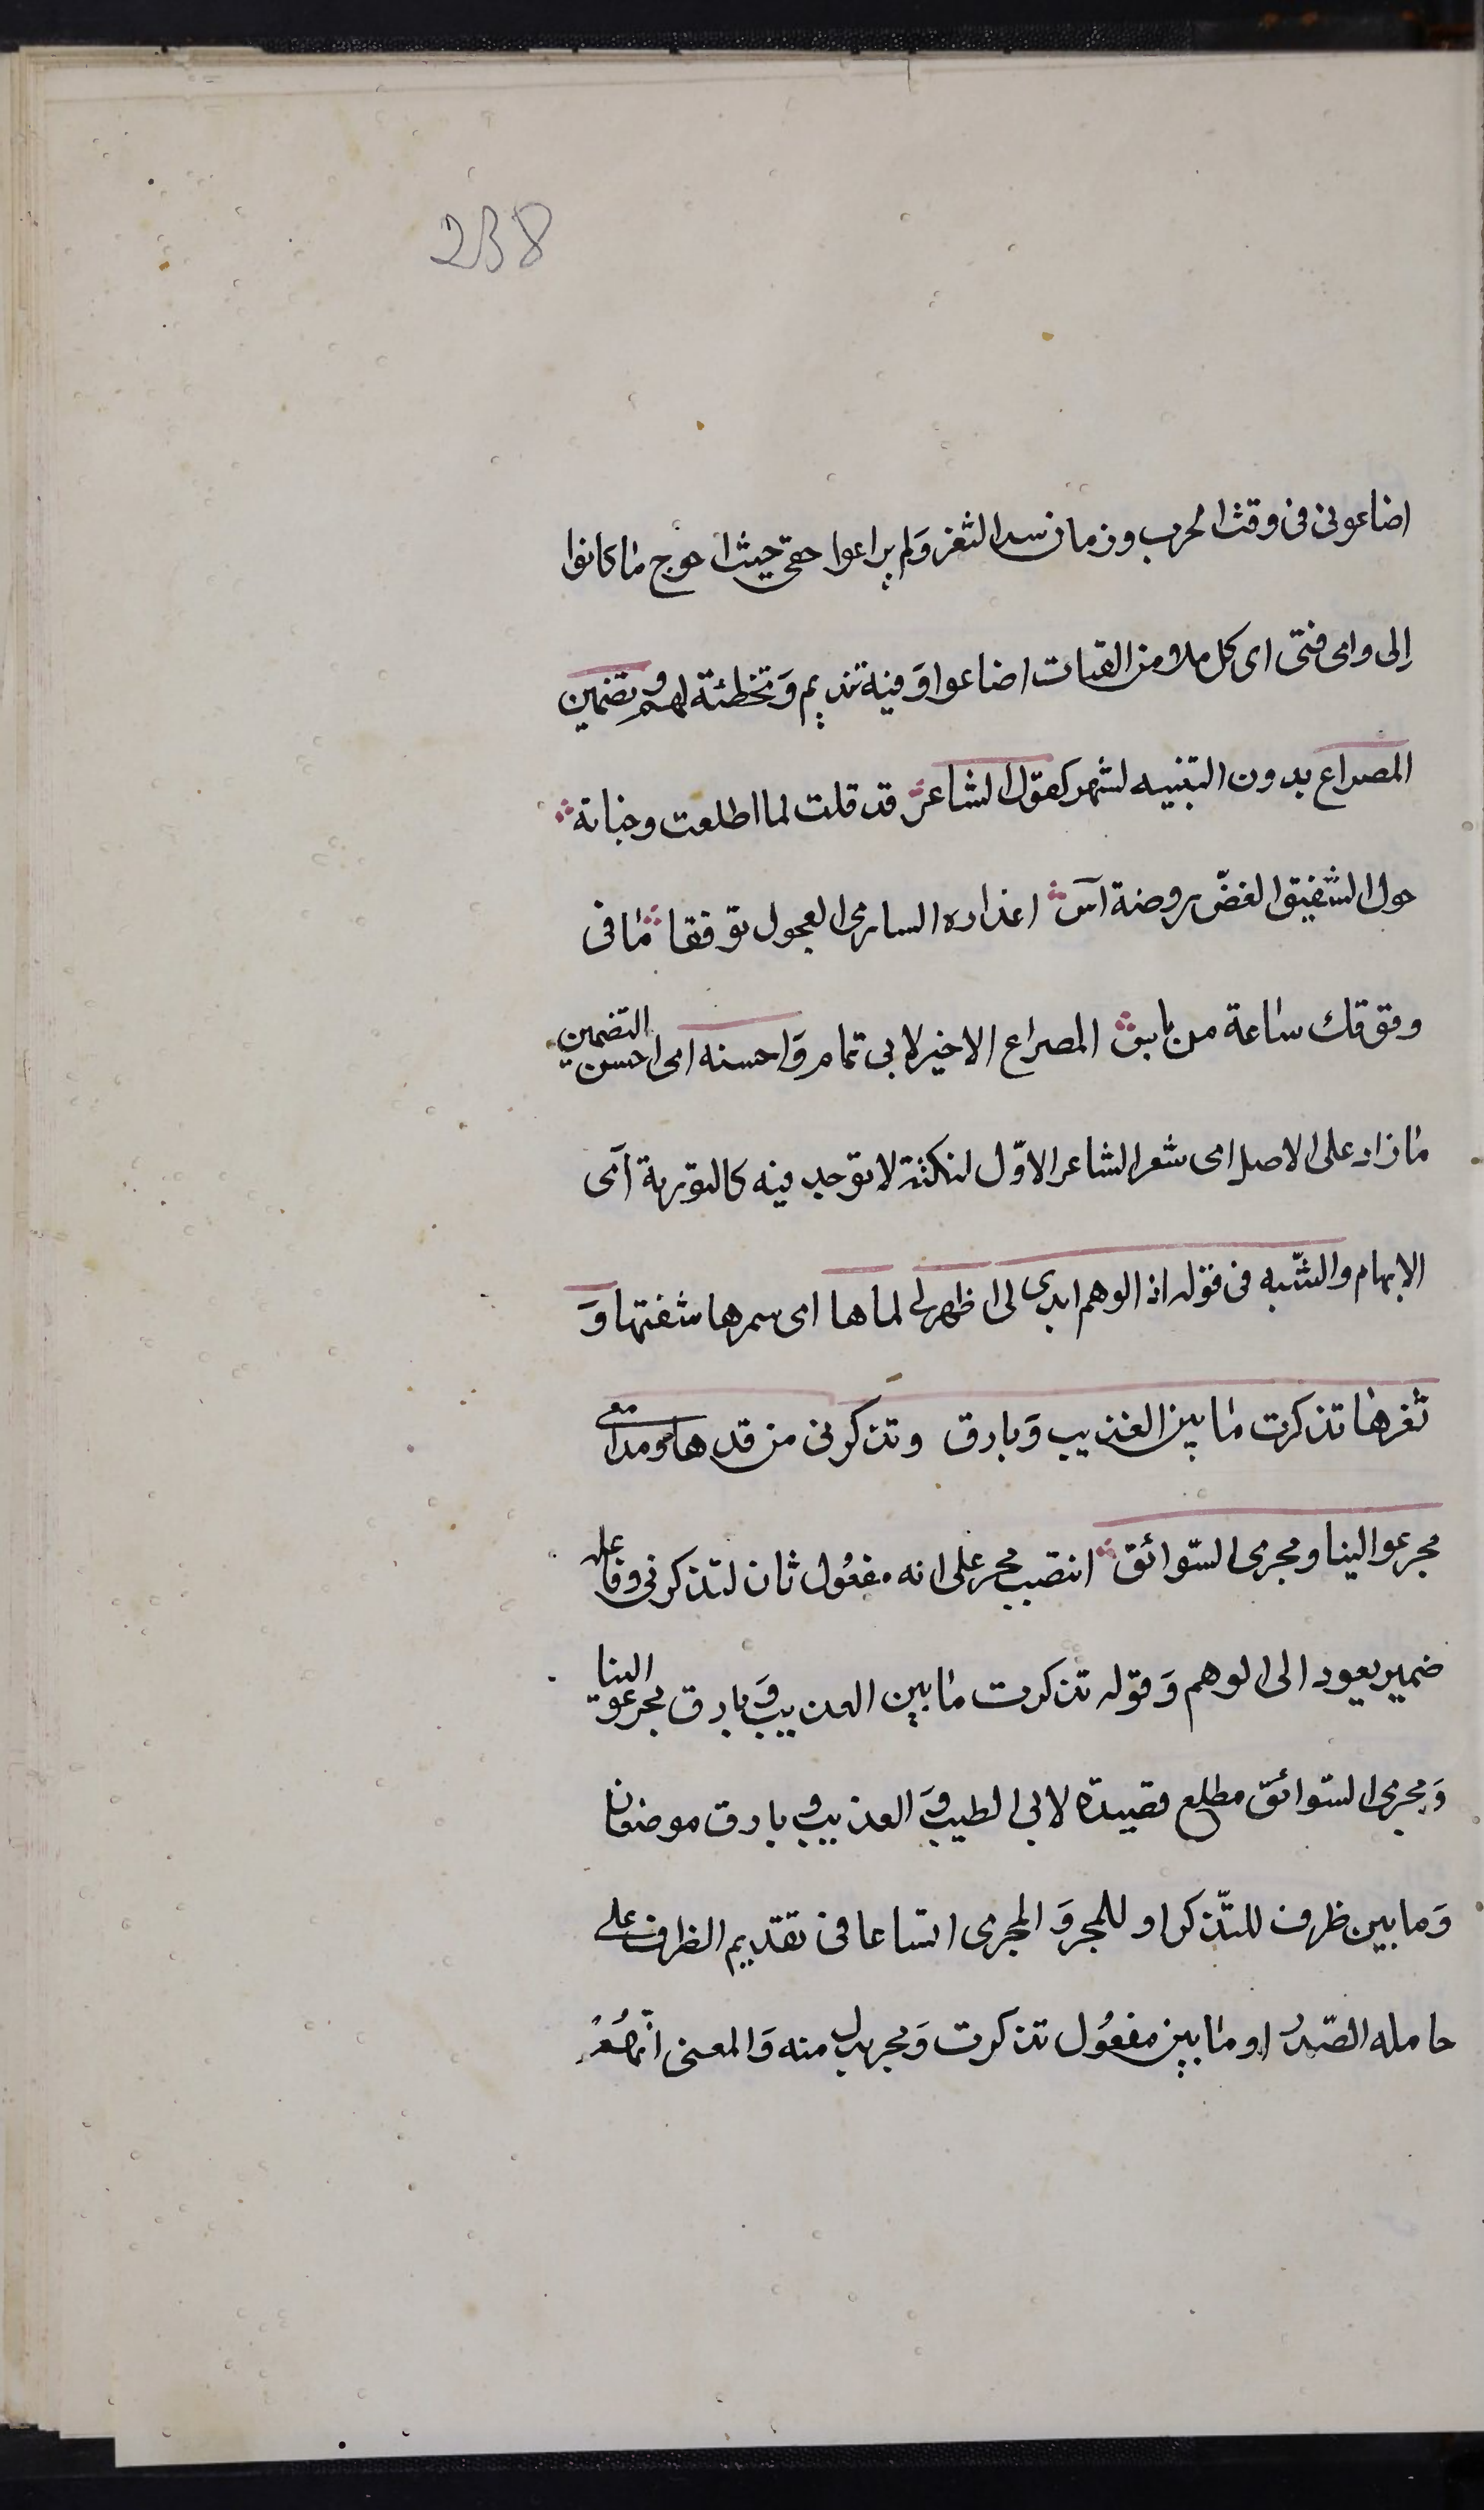 238
اضاعونى فى وقت الحرب وزمان سد الثغر وَلم يراعوا حقى حيث احوج ما كانوا
إلى واى فتى اى كل ملا من الفتيات اضاعوا وَفيه تنديم وَتخطئة لهم وتضمين
المصراع بدون التنبيه لشهر كقول الشاعر قد قلت لما اطلعت وجناته
حول الشقيق الغضّ روضة آس اعذاره السارى العجول توققا ما فى
وقوقك ساعة من باس المصراع الاخير لابى تمام وَاحسنه اى احسن التضمين
ما زاد على الاصل اى شعر الشاعر الاوّل لنكتة لا توجد فيه كالتورية آى
الابهام والشّبه فى قوله اذ الوهم ابدى لى اظهر لى لماها اى سمرها شفتها وَ
ثغرها تذكرت ما بين العذيب وَبارق وتذكرنى من قدها ومدامعى
مجر عوالينا ومجرى السّوائق انتصب مجر على انه مفعُول ثان لتذكرنى وفاعله
ضمير يعود الى الوهم وَقوله تذكرت ما بين العذيب وَبارق مجر عوالينا
وَمجرى السّوائق مطلع قصيدة لابى الطيب وَالعذيب وبارق موضعان
وَما بين ظرف للتّذكر او للمجر وَالمجرى اتساعا فى تقديم الظرف على
عامله الصّدر او ما بين مفعُول تذكرت وَمجر بدل منه وَالمعنى انهُم